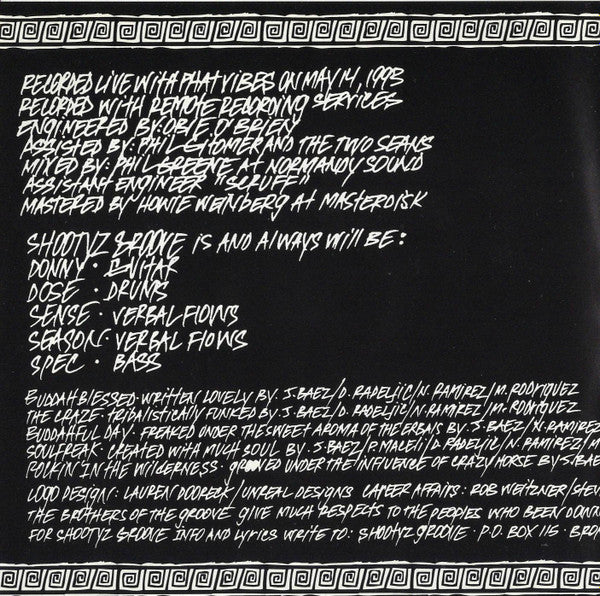 RECORDED LIVE WITH PHAT VIBES ON MAY 14, 1993
RECORDED WITH REMOTE RECORDING SERVICES
ENGINEERED BY: OBIE O'BRIEN
ASSISTED BY: PHIL GITOMER AND THE TWO SEANS
MIXED BY: PHIL GREENE AT NORMANDY SOUND
ASSISTANT ENGINEER "SCRUFF"
MASTERED BY HOWIE WEINBERG AT MASTERDISK
SHOOTYZ GROOVE IS AND ALWAYS WILL BE:
DONNY · GUITAR
DOSE · DRUMS
SENSE · VERBAL FLOWS
SEASON · VERBAL FLOWS
SPEC · BASS
BUDDAH BLESSED · WRITTEN LOVELY BY · J. BAEZ/D. RADELJIC/N. RAMIREZ/M. RODRIQUEZ
THE CRAZE · TRIBALISTICALLY FUNKED BY · J. BAEZ/D. RADELJIC/N. RAMIREZ/M. RODRIQUEZ
BUDDAHFUL DAY · FREAKED UNDER THE SWEET AROMA OF THE ERBALS BY · J. BAEZ/N. RAMIREZ
SOULFREAK · CREATED WITH MUCH SOUL BY · J. BAEZ/P. MACELI/D. RADELJIC/N. RAMIREZ/M
ROCKIN' IN THE WILDERNESS · GROOVED UNDER THE INFLUENCE OF CRAZY HORSE BY · J. BAE
LOGO DESIGN: LAUREN DOORECK/UNREAL DESIGNS CAREER AFFAIRS: ROB WEITZNER/STEV
THE BROTHERS OF THE GROOVE GIVE MUCH RESPECTS TO THE PEOPLES WHO BEEN DOWN
FOR SHOOTYZ GROOVE INFO AND LYRICS WRITE TO: SHOOTYZ GROOVE · P.O. BOX 115 · BRON